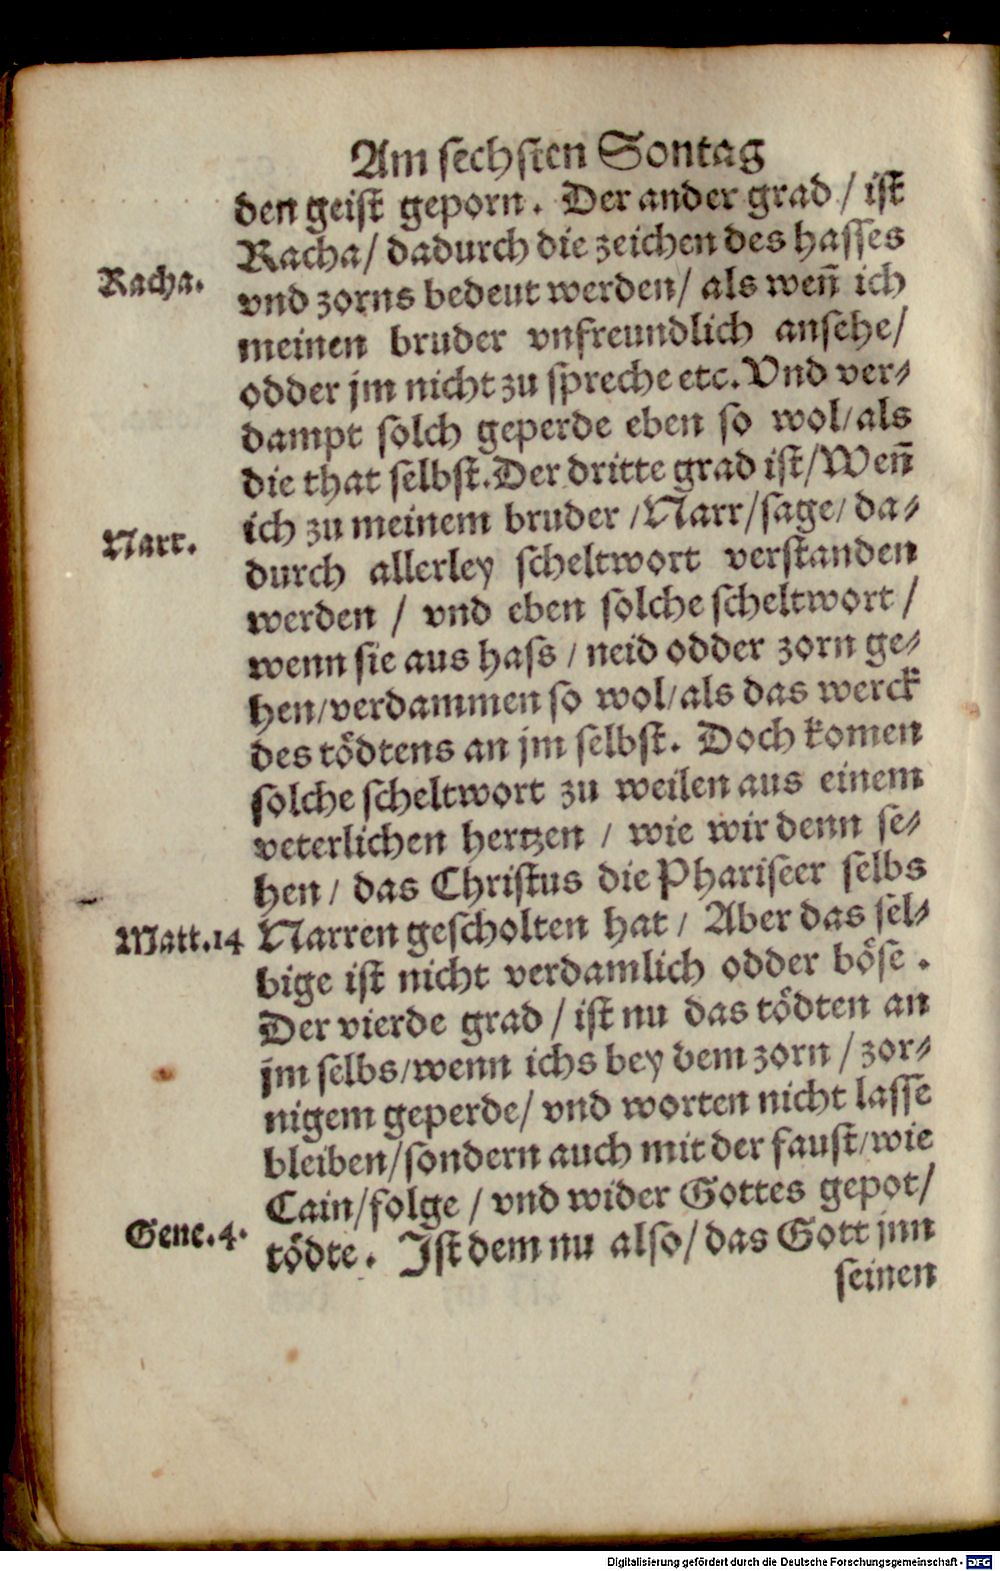 Am sechsten Sontag
den geist geporn. Der ander grad / ist
Racha/ dadurch die zeichen des hasses
Racha.
vnd zorns bedeut werden/ als weñ ich
meinen bruder vnfreundlich ansehe/
odder jm nicht zu spreche etc. Vnd ver⸗
dampt solch geperde eben so wol/als
die that selbst.Der dritte grad ist/Weñ
ich zu meinem bruder /Narr/sage/ da⸗
Narr.
durch allerley scheltwort verstanden
werden / vnd eben solche scheltwort /
wenn sie aus hass / neid odder zorn ge⸗
hen/verdammen so wol/als das werck
des tödtens an jm selbst. Doch komen
solche scheltwort zu weilen aus einem
veterlichen hertzen / wie wir denn se⸗
hen/ das Christus die Phariseer selbs
Matt.14
Narren gescholten hat / Aber das sel⸗
bige ist nicht verdamlich odder böse.
Der vierde grad / ist nu das tödten an
jm selbs/wenn ichs bey dem zorn / zor⸗
nigem geperde/ vnd worten nicht lasse
bleiben/sondern auch mit der faust/wie
Cain/folge / vnd wider Gottes gepot/
Gene.4.
tödte. Ist dem nu also/ das Gott jnn
seinen
Digitalisierung gefördert durch die Deutsche Forschungsgemeinschaft - DFG